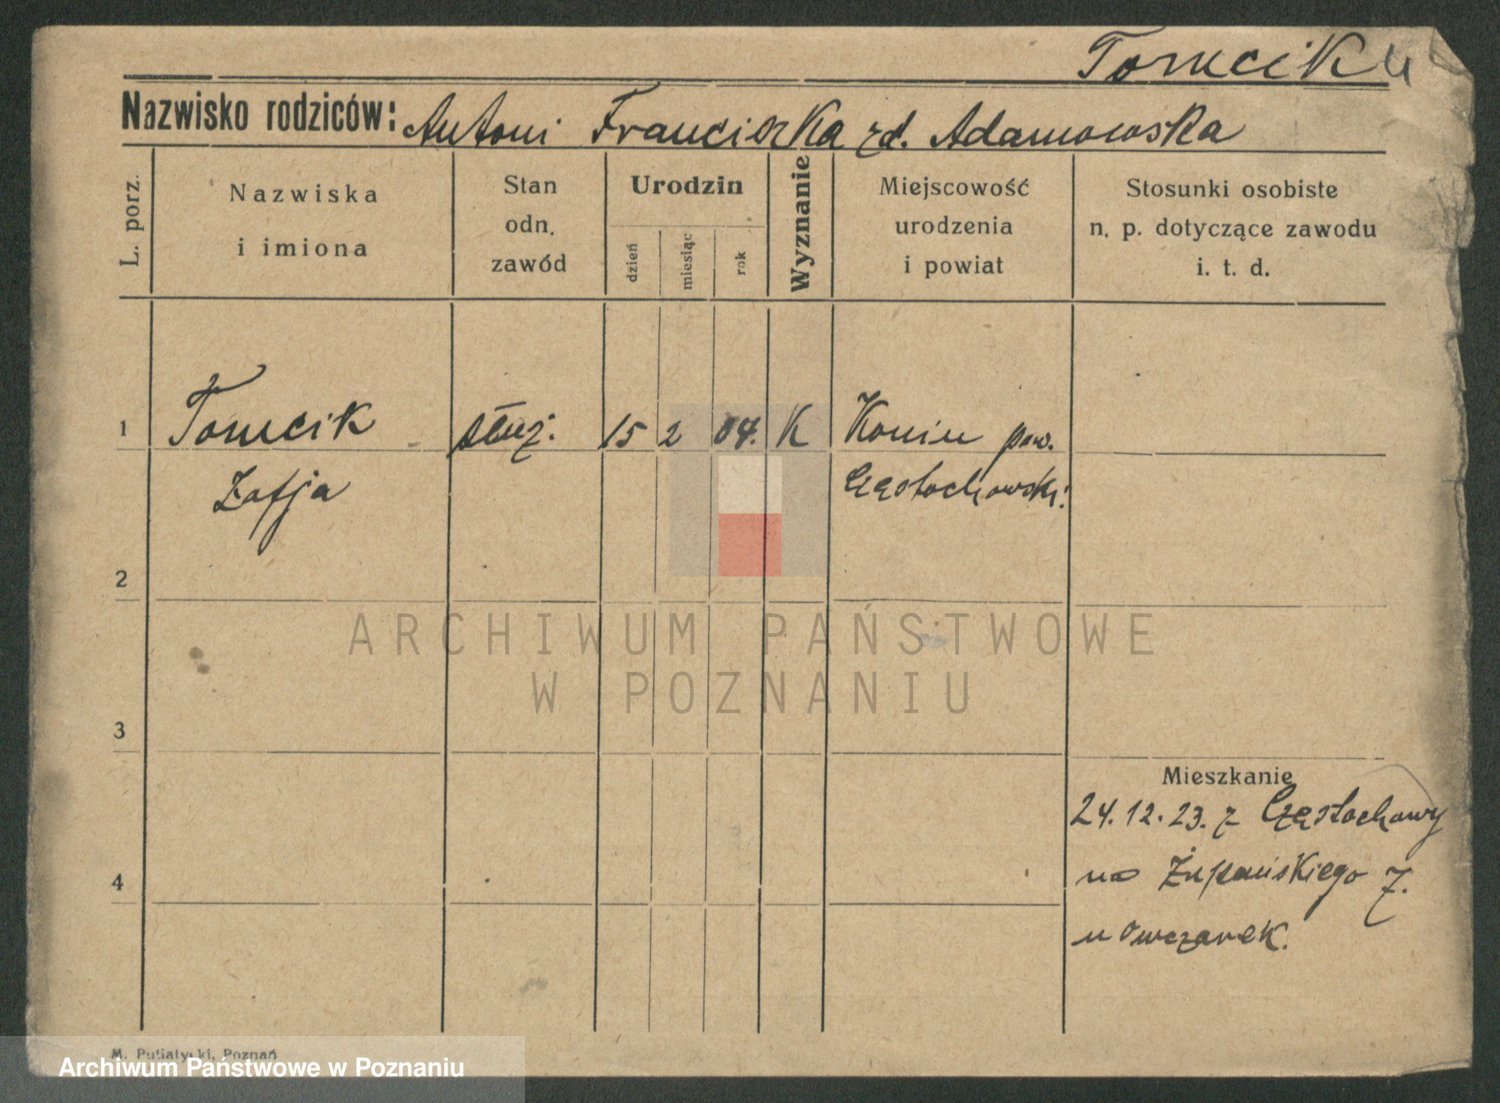 Tomcik
Nazwisko rodziców: Antoni Franciszka zd. Adamowska
L. porz.
Nazwiska
i imiona
Stan
odn.
zawód
Urodzin
dzień
miesiąc
rok
Wyznanie
Miejscowość
urodzenia
i powiat
Stosunki osobiste
n. p. dotyczące zawodu
i. t. d.
1 Tomcik służ. 15 2 04. K Konin pow.
Zofja Częstochowski.
2
ARCHIWUM PAŃSTWOWE
W POZNANIU
3
Mieszkanie
24.12.23. z Częstochowy
na Żupańskiego 7.
u Owczarek.
4
M. Putiatycki, Poznań
Archiwum Państwowe w Poznaniu